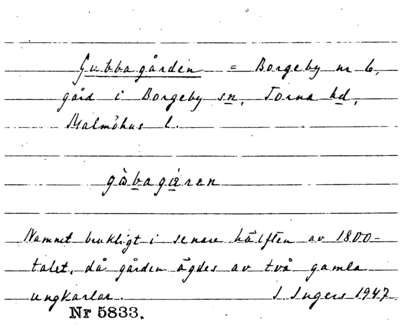 Gubbagården = Borgeby nr 6,
gård i Borgeby sn, Torna hd,
Malmöhus l.
gòbagáren
Namnet brukligt i senare hälften av 1800-
talet, då gården ägdes av två gamla
ungkarlar. I Ingers 1947
Nr 5833.